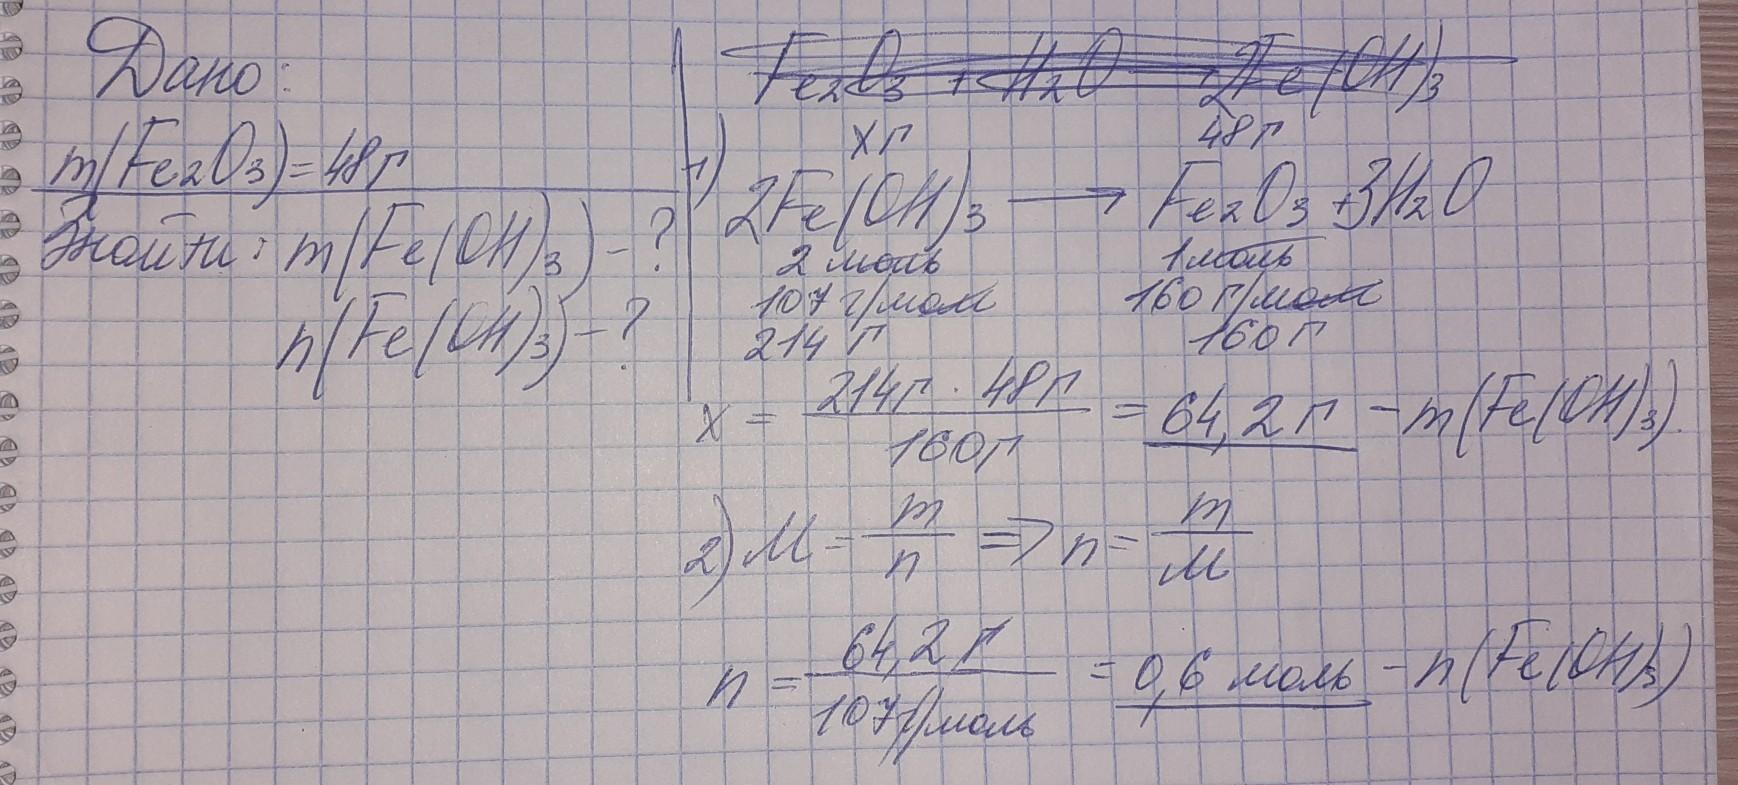 Дано:
m(Fe₂O₃)=48г
Знайти: m(Fe(OH)₃)-?
n(Fe(OH)₃)-?
Fe₂O₃ + H₂O → 2Fe(OH)₃
xг 48г
1) 2Fe(OH)₃ → Fe₂O₃ + 3H₂O
2 моль 1 моль
107 г/моль 160 г/моль
214 г 160 г
x = (214г · 48г)/160г = 64,2 г - m(Fe(OH)₃).
2) M = m/n => n = m/M
n = 64,2 г/107 г/моль = 0,6 моль - n(Fe(OH)₃)